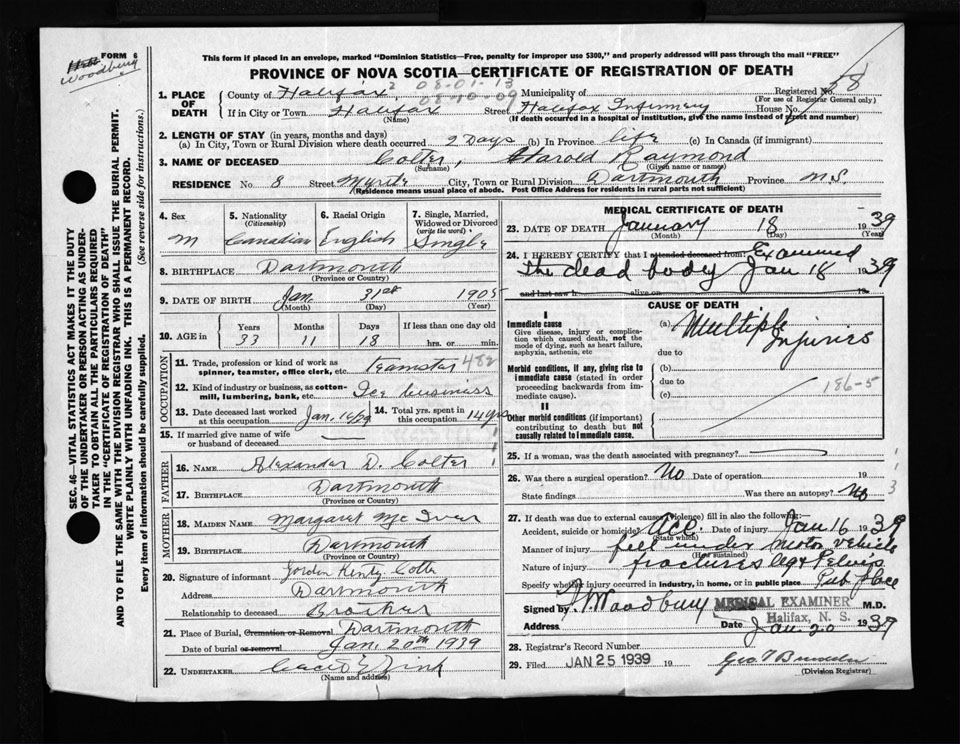 FORM 6
Woodbury
This form if placed in an envelope, marked "Dominion Statistics—Free, penalty for improper use $300," and properly addressed will pass through the mail "FREE"
PROVINCE OF NOVA SCOTIA—CERTIFICATE OF REGISTRATION OF DEATH
1. PLACE OF DEATH
County of Halifax 2 08-01-13 Municipality of Registered No. 58
(For use of Registrar General only)
If in City or Town Halifax 02-10-09 Street Halifax Infirmary House No.
(Name) (If death occurred in a hospital or institution, give the name instead of street and number)
2. LENGTH OF STAY (in years, months and days)
(a) In City, Town or Rural Division where death occurred 2 Days (b) In Province life (c) In Canada (if immigrant)
3. NAME OF DECEASED Colter, Harold Raymond
(Surname) (Given name or names)
RESIDENCE No. 8 Street Myrtle City, Town or Rural Division Dartmouth Province N.S.
(Residence means usual place of abode. Post Office Address for residents in rural parts not sufficient)
SEC. 46—VITAL STATISTICS ACT MAKES IT THE DUTY
OF THE UNDERTAKER OR PERSON ACTING AS UNDER-
TAKER TO OBTAIN ALL THE PARTICULARS REQUIRED
IN THE "CERTIFICATE OF REGISTRATION OF DEATH"
AND TO FILE THE SAME WITH THE DIVISION REGISTRAR WHO SHALL ISSUE THE BURIAL PERMIT.
WRITE PLAINLY WITH UNFADING INK. THIS IS A PERMANENT RECORD.
Every item of information should be carefully supplied. (See reverse side for instructions.)
4. Sex
M
5. Nationality
(Citizenship)
Canadian
6. Racial Origin
English
7. Single, Married,
Widowed or Divorced
(write the word)
Single
8. BIRTHPLACE Dartmouth
(Province or Country)
9. DATE OF BIRTH Jan. 31st 1905
(Month) (Day) (Year)
10. AGE in
Years Months Days If less than one day old
33 11 18 hrs. or min.
OCCUPATION
11. Trade, profession or kind of work as
spinner, teamster, office clerk, etc. Teamster 482
12. Kind of industry or business, as cotton-
mill, lumbering, bank, etc. Ice business
13. Date deceased last worked
at this occupation Jan. 16/39
14. Total yrs. spent in
this occupation 14 yrs
15. If married give name of wife
or husband of deceased
FATHER
16. NAME Alexander D. Colter
17. BIRTHPLACE Dartmouth
(Province or Country)
MOTHER
18. MAIDEN NAME Margaret McIver
19. BIRTHPLACE Dartmouth
(Province or Country)
20.
Signature of informant Gordon
Address Dartmouth
Relationship to deceased Brother
21. Place of Burial, Cremation or Removal Dartmouth
Date of burial or removal Jan 20th 1939
22. UNDERTAKER Zink
(Name and address)
MEDICAL CERTIFICATE OF DEATH
23. DATE OF DEATH January 18 1939
(Month) (Day) (Year)
24. I HEREBY CERTIFY that I attended deceased from: Examined
the dead body Jan 18 1939
and last saw h alive on 19
CAUSE OF DEATH
I
Immediate cause
Give disease, injury or complica-
tion which caused death, not the
mode of dying, such as heart failure,
asphyxia, asthenia, etc
(a) Multiple Injuries
due to
Morbid conditions, if any, giving rise to
immediate cause (stated in order
proceeding backwards from im-
mediate cause).
(b)
due to
(c)
186-5
II
Other morbid conditions (if important)
contributing to death but not
causally related to immediate cause.
25. If a woman, was the death associated with pregnancy?
26. Was there a surgical operation? No Date of operation 19
State findings Was there an autopsy? No
27. If death was due to external causes (violence) fill in also the following:
Accident, suicide or homicide? Acc. Date of injury Jan 16 1939
(State which)
Manner of injury fell under Motor vehicle
(How sustained)
Nature of injury fractures leg & Pelvis
Specify whether injury occurred in industry, in home, or in public place Pub place
Signed by Woodbury MEDICAL EXAMINER M.D.
Halifax, N. S.
Address Date Jan. 20 1939
28. Registrar's Record Number
29. Filed JAN 25 1939 19
(Division Registrar)